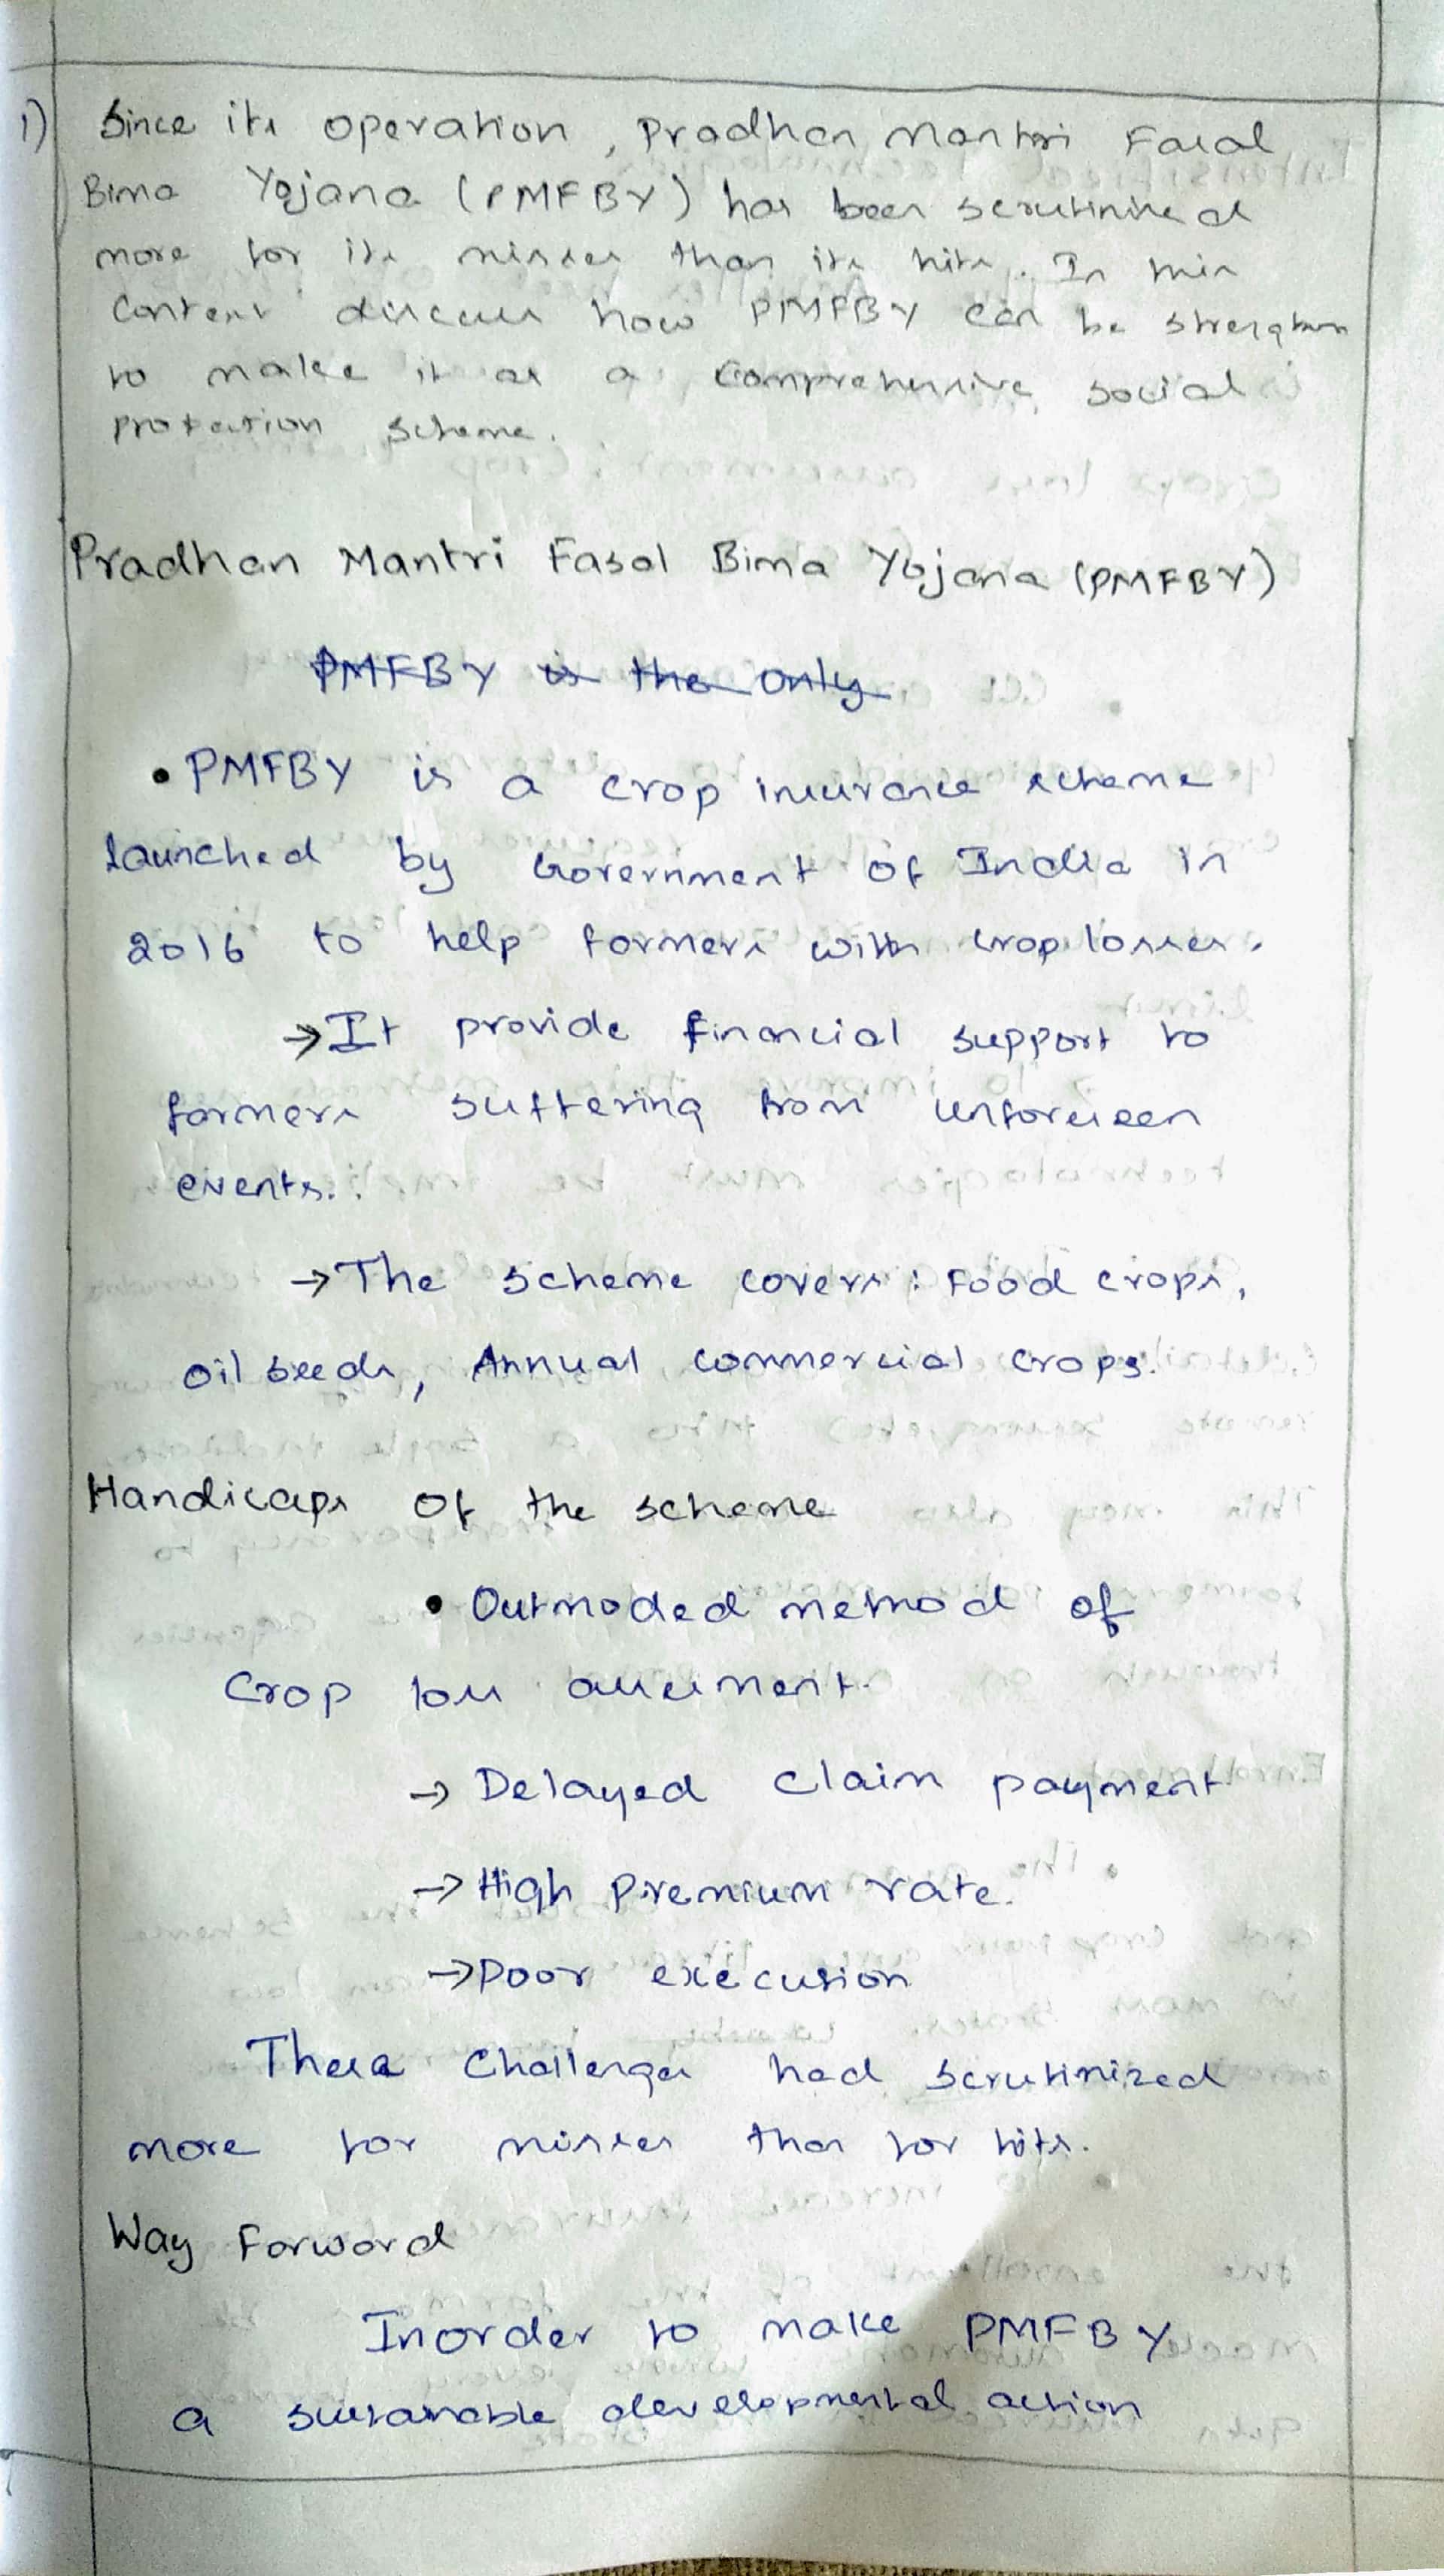 1) Since its operation, Pradhan Mantri Fasal
Bima Yojana (PMFBY) has been scrutinized
more for its misses than its hits. In this
Context discuss how PMFBY can be strengthen
to make it as a Comprehensive social
protection scheme.
Pradhan Mantri Fasal Bima Yojana (PMFBY)
PMFBY is the only
• PMFBY is a crop insurance scheme
launched by Government of India in
2016 to help farmers with crop losses.
→ It provide financial support to
farmers suffering from unforeseen
events.
→ The scheme covers : Food crops,
oil seeds, Annual commercial crops.
Handicaps of the scheme
• Outmoded method of
Crop loss assesment.
→ Delayed claim payment
→ High Premium rate.
→ Poor execution
These Challenges had scrutinized
more for misses than for hits.
Way Forward
Inorder to make PMFBY
a sustainable developmental action